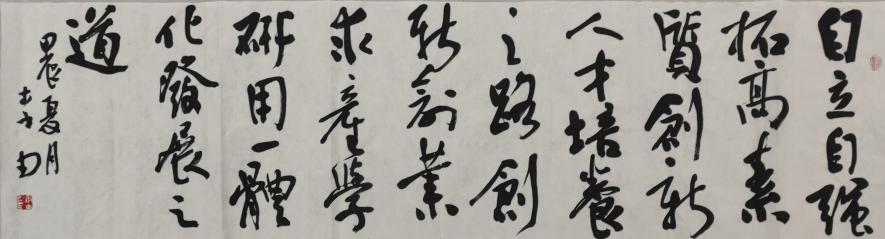 自立自強
拓高素
質創新
人才培養
之路創
新創業
求產學
研用一體
化發展之
道
甲辰夏月